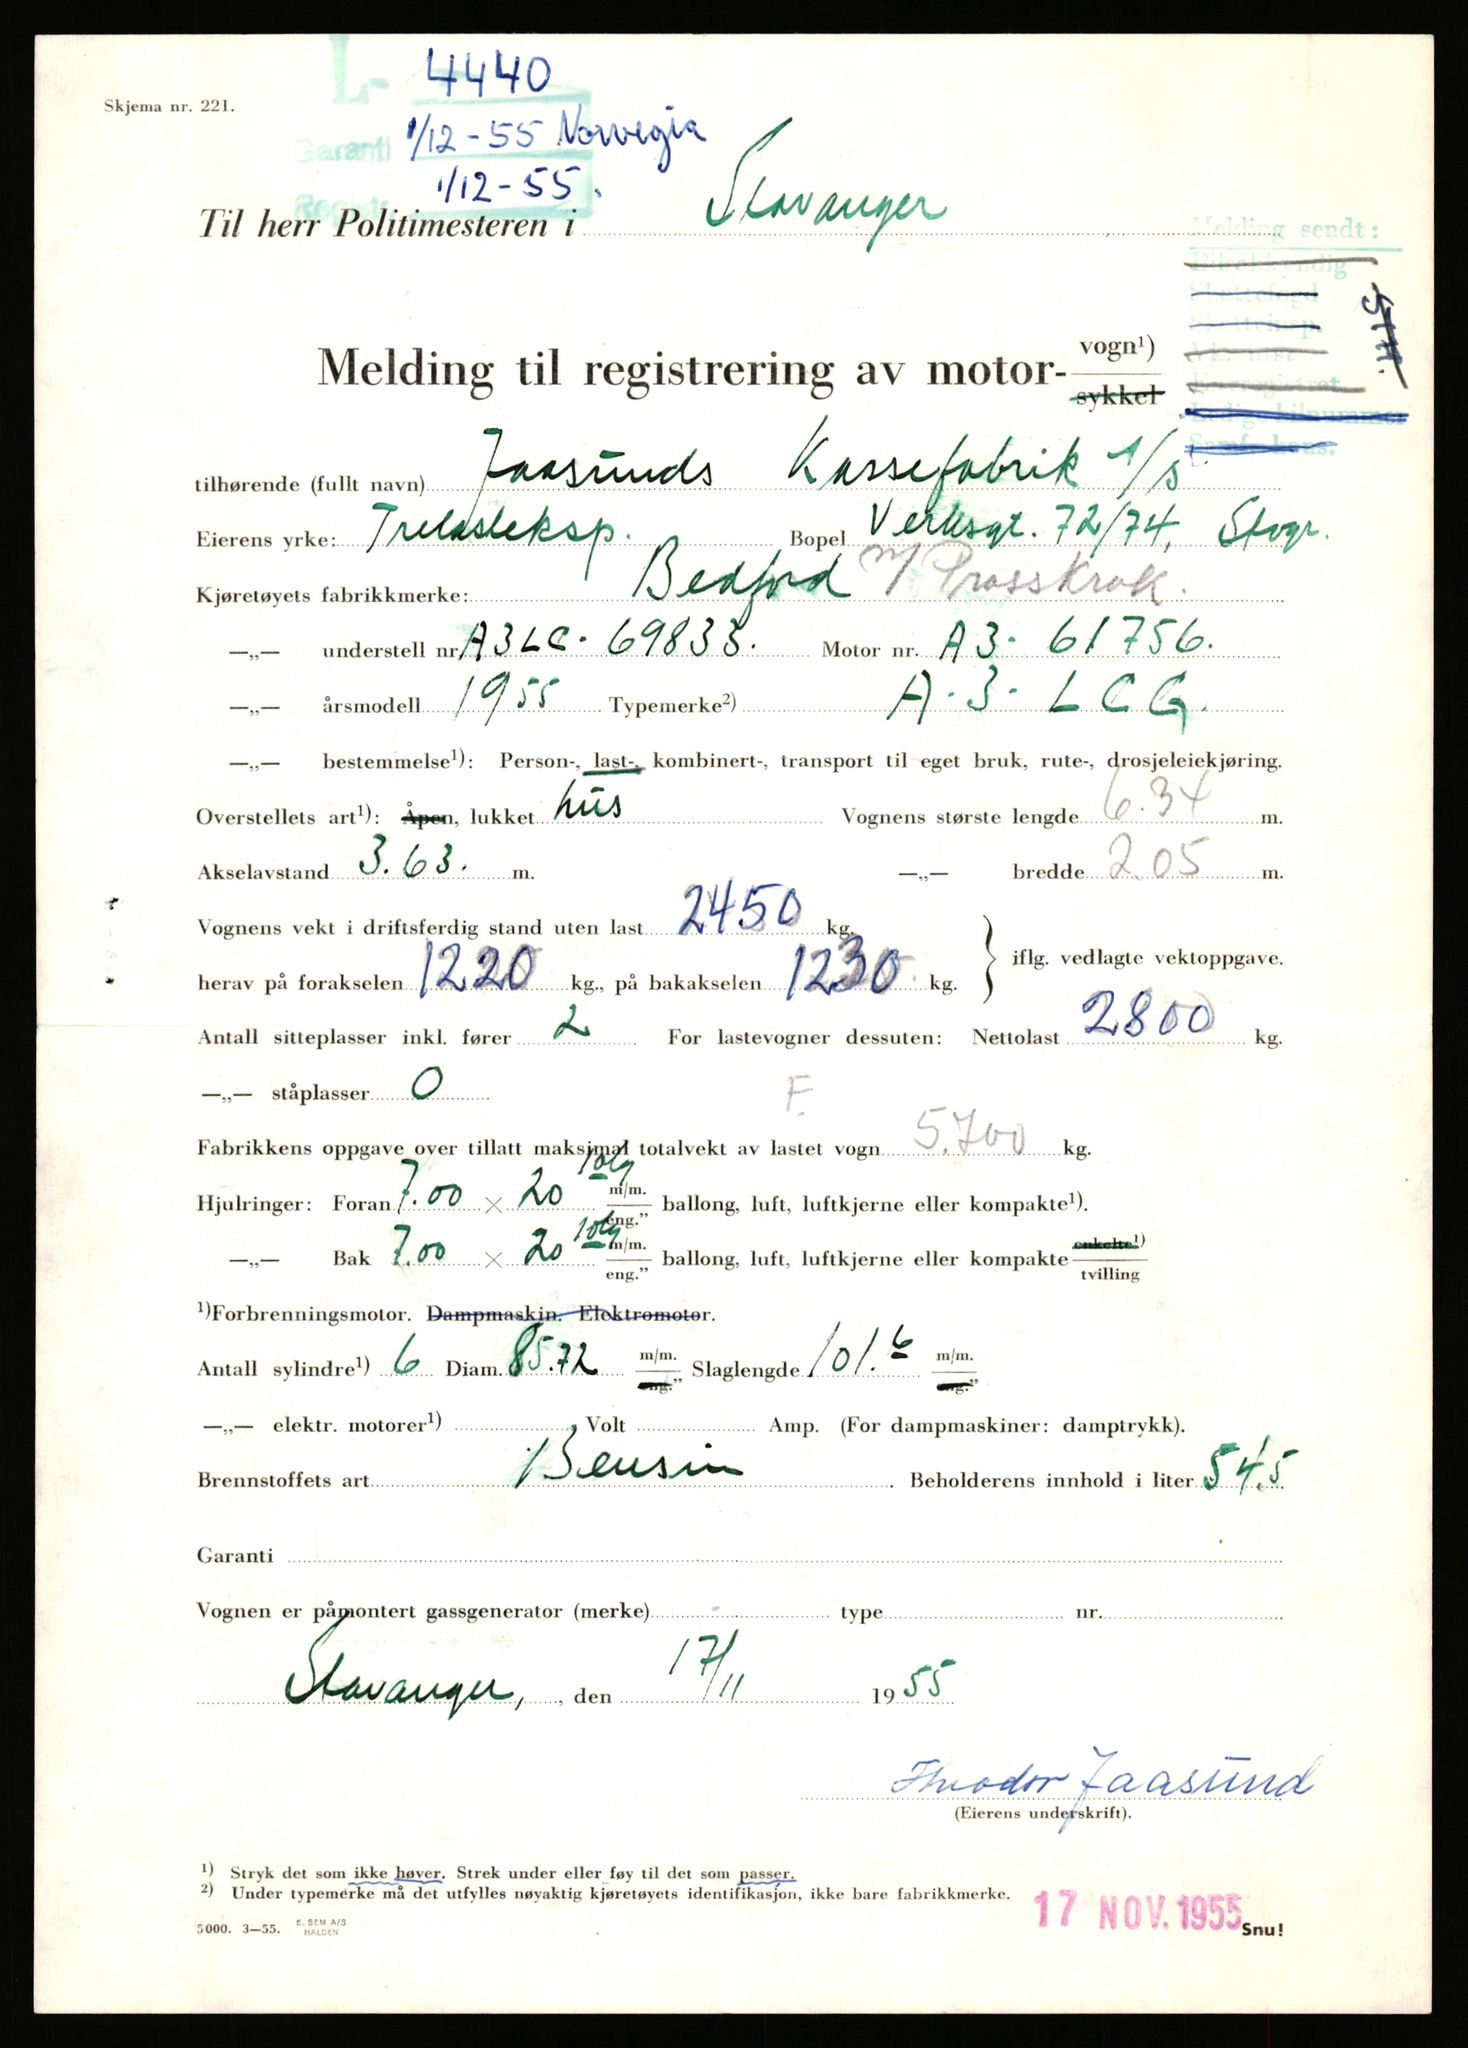 L- 4440
Skjema nr. 221.
Garanti 1/12-55 Norvegia
Registr. 1/12-55.
Til herr Politimesteren i Stavanger
Melding sendt:
Bilsakkyndig
Melding til registrering av motor- vogn¹)
sykkel
tilhørende (fullt navn) Jaasunds Kassefabrik A/S
Eierens yrke: Trelasteksp. Bopel Verksgt. 72/74, Stvgr.
Kjøretøyets fabrikkmerke: Bedford
—„— understell nr. A3LC- 69833. Motor nr. A3- 61756.
—„— årsmodell 1955 Typemerke²) A-3-LCG.
—„— bestemmelse¹): Person-, last-, kombinert-, transport til eget bruk, rute-, drosjeleiekjøring.
Overstellets art¹): Åpen, lukket hus Vognens største lengde 6.34 m.
Akselavstand 3.63. m. —„— bredde 2.05 m.
Vognens vekt i driftsferdig stand uten last 2450 kg.
herav på forakselen 1220 kg., på bakakselen 1230 kg. iflg. vedlagte vektoppgave.
Antall sitteplasser inkl. fører 2 For lastevogner dessuten: Nettolast 2800 kg.
—„— ståplasser 0 F.
Fabrikkens oppgave over tillatt maksimal totalvekt av lastet vogn 5.700 kg.
Hjulringer: Foran 7.00 × 20 10lg m/m. eng.” ballong, luft, luftkjerne eller kompakte¹).
—„— Bak 7.00 × 20 10lg m/m. eng.” ballong, luft, luftkjerne eller kompakte enkelte¹) tvilling
¹)Forbrenningsmotor. Dampmaskin. Elektromotor.
Antall sylindre¹) 6 Diam. 85.72 m/m. eng.” Slaglengde 101.6 m/m. eng.”
—„— elektr. motorer¹) Volt Amp. (For dampmaskiner: damptrykk).
Brennstoffets art Bensin. Beholderens innhold i liter 54.5
Garanti
Vognen er påmontert gassgenerator (merke) type nr.
Stavanger, , den 17/11 1955
Theodor Jaasund
(Eierens underskrift).
¹) Stryk det som ikke høver. Strek under eller føy til det som passer.
²) Under typemerke må det utfylles nøyaktig kjøretøyets identifikasjon, ikke bare fabrikkmerke.
17 NOV. 1955
5000. 3—55. E. SEM A/S HALDEN Snu!